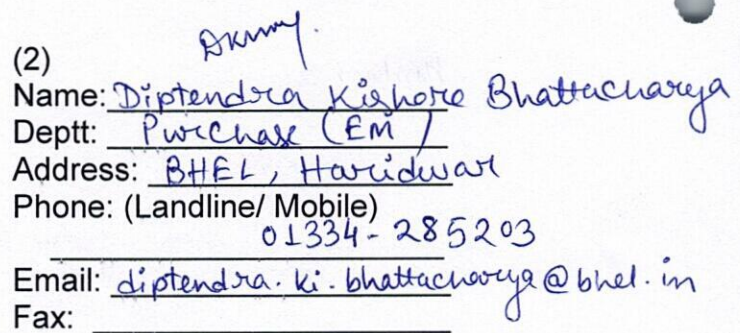 (2)
Name: Diptendra Kishore Bhattacharya
Deptt: Purchase (EM)
Address: BHEL, Haridwar
Phone: (Landline/ Mobile)
01334-285203
Email: diptendra.ki.bhattacharya@bhel.in
Fax: